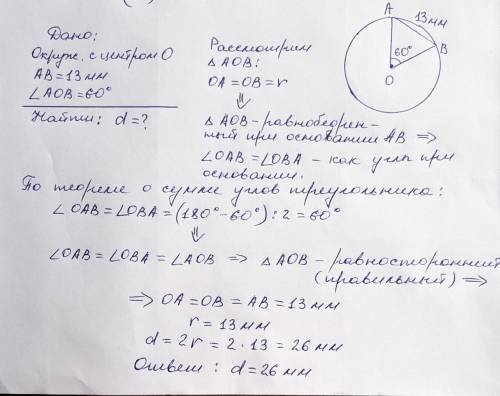 Дано:
Окруж. с центром О
AB = 13 мм
∠AOB = 60°
Найти: d = ?
Рассмотрим
△AOB:
OA = OB = r
⇓
△AOB - равнобедрен-
ный при основании AB ⇒
∠OAB = ∠OBA - как углы при
основании.
A
13 мм
B
60°
O
По теореме о сумме углов треугольника:
∠OAB = ∠OBA = (180° - 60°) : 2 = 60°
⇓
∠OAB = ∠OBA = ∠AOB ⇒ △AOB - равносторонний
(правильный) ⇒
⇒ OA = OB = AB = 13 мм
r = 13 мм
d = 2r = 2 · 13 = 26 мм
Ответ: d = 26 мм